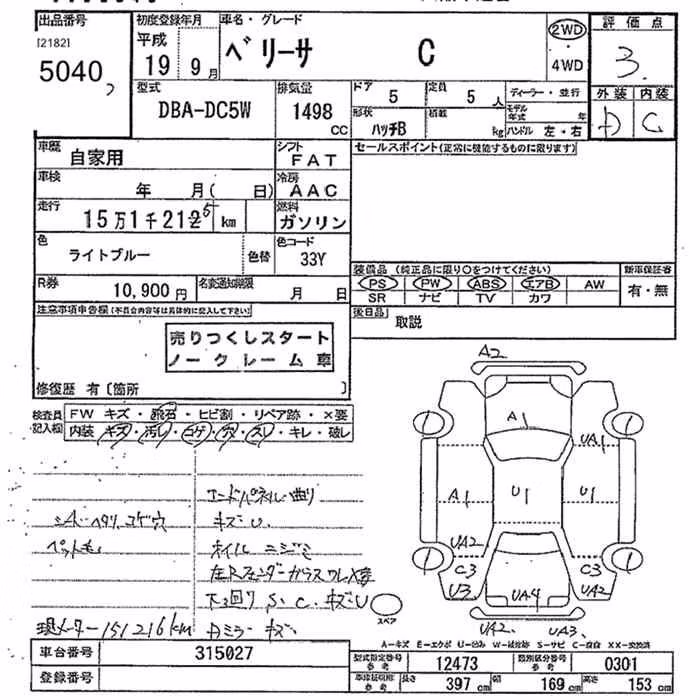 出品番号 初度登録年月 車名・グレード 評価点
[2182] 平成 ベリーサ C 2WD
5040 19 9月 ・ 3.
4WD
型式 排気量 ドア 5 定員 5人 ディーラー・並行 外装 内装
DBA-DC5W 1498 CC 形状 ハッチB 積載 kg モデル年式 年 D C
ハンドル 左・右
車歴 自家用 シフト FAT セールスポイント(正常に機能するものに限ります)
車検 年 月( 日) 冷房 AAC
走行 15万1千212 5 km 燃料 ガソリン
色 ライトブルー 色替 色コード 33Y
装備品 (純正品に限り○をつけてください) 新車保証書
R券 10,900円 名変通知期限 月 日 PS PW ABS エアB AW 有・無
SR ナビ TV カワ
注意事項申告欄(不具合内容等は具体的に記入して下さい) 後日品 取説
売りつくしスタート
ノークレーム車
修復歴 有〔箇所 〕
検査員記入欄 FW キズ・飛石・ヒビ割・リペア跡・×要
内装 キズ・汚レ・コゲ・穴・スレ・キレ・破レ
A2
A1
UA1 UA1
A1 U1 U1
UA2
C3 C3
U3 UA4 UA2
UA2. UA3.
1 1 1 1
エンドパネル曲り
シート ヘタリ コゲ穴 キズU.
ペット毛 オイル ニジミ
左Rフェンダーガラスワレ×要
下回り S. C. キズU
スペア
現メーター151216km Dミラーキズ
A-キズ E-エクボ U-凹み W-補修跡 S-サビ C-腐食 XX-交換済
車台番号 315027 型式指定番号 参考 12473 類別区分番号 参考 0301
登録番号 車検証明際 参考 長さ 397cm 幅 169cm 高さ 153cm